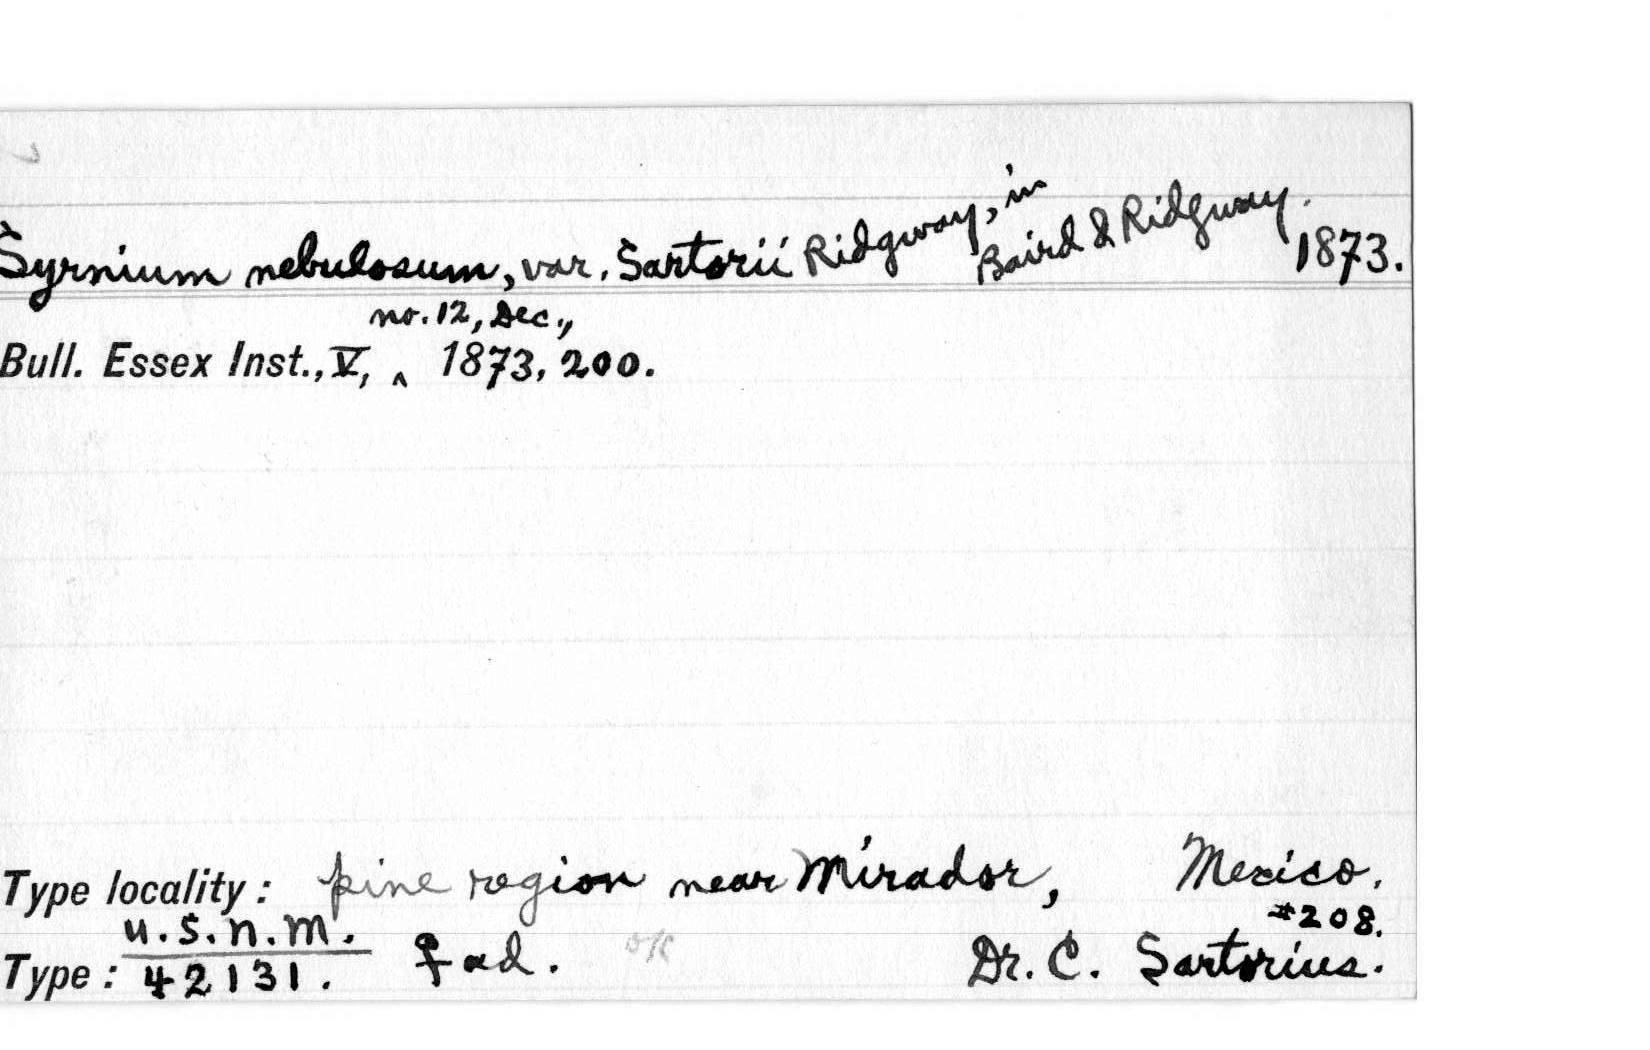 Syrnium nebulosum, var. Sartorii Ridgway, in Baird & Ridgway. 1873.
no. 12, Dec.,
Bull. Essex Inst., V, ‸ 1873, 200.
Type locality: pine region near Mirador, Mexico.
#208.
U.S.N.M.
Type: 42131. ♀ ad. ok Dr. C. Sartorius.